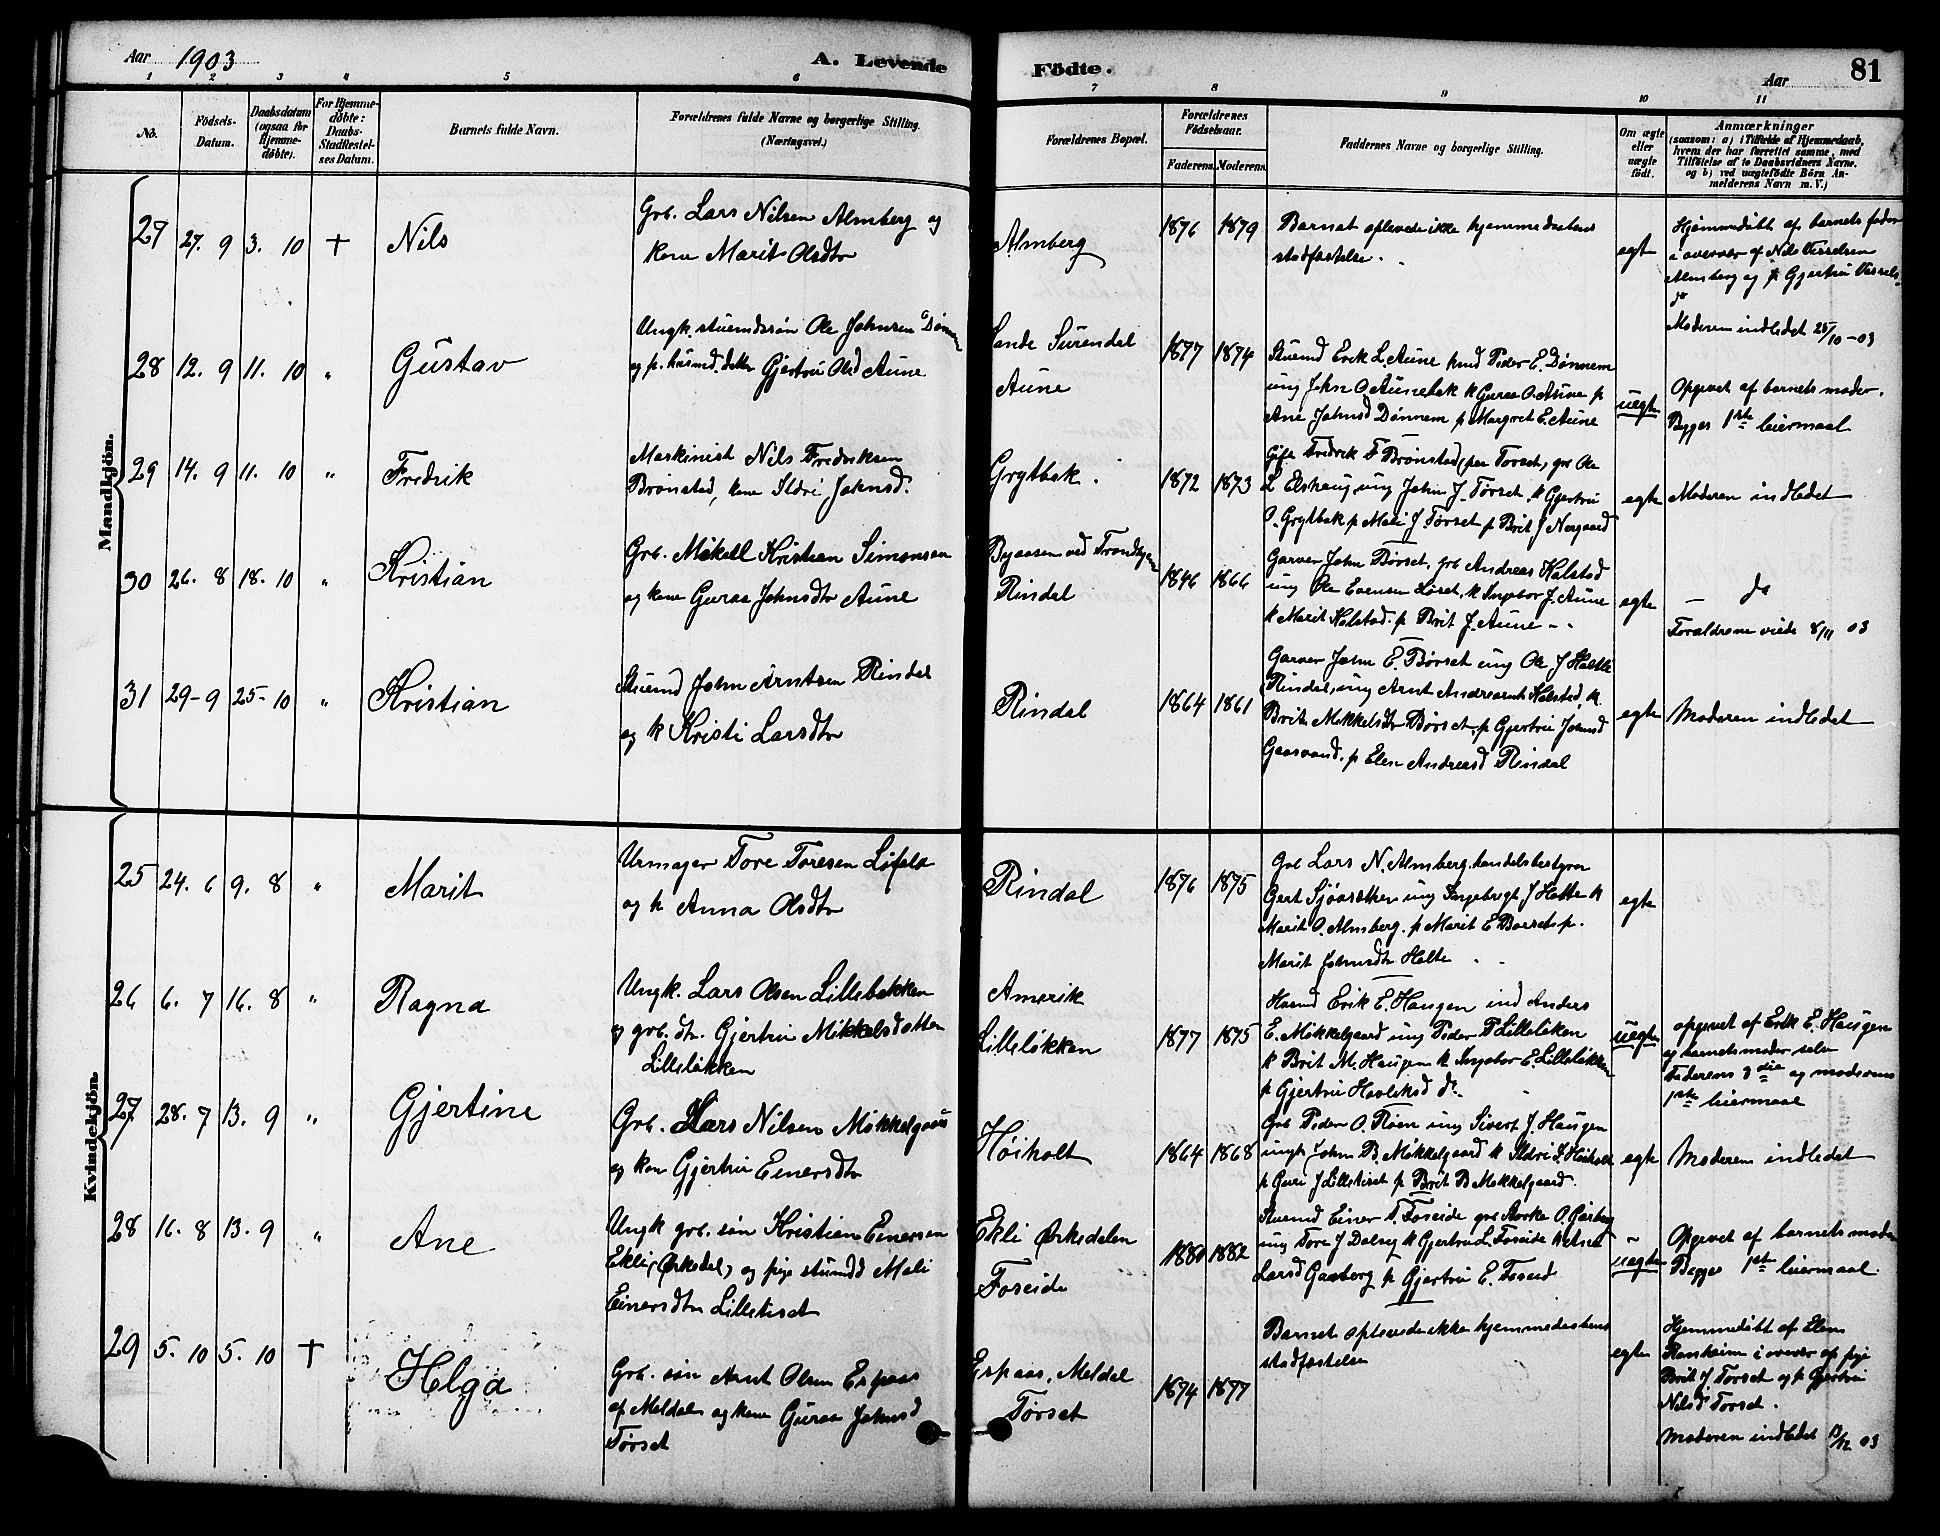 Aar 1903
A. Levende Födte.
Aar
81
1 2 3 4 5 6 7 8 9 10 11
No.
Födsels-Datum.
Daabsdatum (ogsaa for Hjemme-döbte).
For Hjemme-döbte: Daabs-Stadfæstel-ses Datum.
Barnets fulde Navn.
Forældrenes fulde Navne og borgerlige Stilling. (Næringsvei.)
Forældrenes Bopæl.
Forældrenes Födselsaar.
Faderens. Moderens.
Faddernes Navne og borgerlige Stilling.
Om ægte eller uægte födt.
Anmærkninger
(saasom: a) i Tilfælde af Hjemmedaab,
hvem der har forrettet samme, med
Tilföielse af to Daabsvidners Navne.
og b) ved uægtefödte Börn An-
melderens Navn m. V.)
Mandkjön.
27 27. 9 3. 10 + Nils
Grb. Lars Nilsen Almberg og
kone Marit Olsdtr
Almberg
1876 1879
Barnet oplevede ikke hjemmedaabens
stadfæstelse.
egte
Hjemmedöbt af barnets fader
i overvær af Nils Vesselsen
Almberg og k Gjertru Vessels
d
Moderen indledet 25/10-03
28 12. 9 11. 10 " Gustav
Ungk. stuemdssön Ole Johnsen Dönnem
og p. husmd. datter Gjertru Olsd Aune
Sande Surendal
Aune
1877 1874
Stuemd Erik L. Aune husmd Peder E. Dønnem
ung John O Aunebak k Guraa O. Aune p
Ane Johnsd Dønnem p Margret E. Aune
uegte
Opgevet af barnets moder.
Begges 1ste leiermaal
29 14. 9 11. 10 " Fredrik
Maskinist Nils Fredriksen
Brønstad, kone Ildri Johnsd.
Grytbak.
1872 1873
Gift Fredrik F Brønstad, Torset, grb Ole
L Elshaug ung John J. Tørset, k Gjertru
O. Grytbak p Mali J. Tørset p Brit J Norgaard
egte
Moderen indledet
30 26. 8 18. 10 " Kristian
Grb. Mikkel Kristian Simonsen
og kone Guraa Johnsdtr Aune
Byaasen ved Trondhjem
Rindal
1846 1866
Garver John Børset, grb Andreas Halstad
ung Ole Evensen Løset, k Ingebor J. Aune
k Marit Halstad. p Brit J. Aune
egte
— do
Foraldrene viede 8/11 03
31 29-9 25-10 " Kristian
Stuemd John Arntsen Rindal
og k Kristi Larsdtr
Rindal
1864 1861
Garver John E. Børset ung Ole J Halle
Rindal, ung Arnt Andreasen Halstad, k.
Brit Mikkelsdtr Børset, p Gjertru Johnsd
Gaasvand. p Elen Andreasd Rindal
egte
Moderen indledet
Kvindekjön.
25 24. 6 9. 8 " Marit
Urmager Tore Toresen Løfald
og k Anna Olsdtr
Rindal
1876 1875
Grb Lars N. Almberg. handelsbestyrer
Gert Sjøasæther ung Ingebrigt J Halte k
Marit O. Almberg. p Marit E Børset p.
Marit Johnsdtr Halte
egte
26 6. 7 16. 8 " Ragna
Ungk. Lars Olsen Lillebakken
og grb. dtr. Gjertru Mikkelsdatter
Lilleløkken
Amerik
Lilleløkken
1877 1875
Husmd Erik E. Haugen ind Anders
E. Møkkelgaard ung Peder P Lilleløken
k Brit M. Haugen k Ingebor E. Lilleløkken
p Gjertru Havliksd do.
uegte
opgevet af Erik E. Haugen
og barnets moder selv
Faderens 3die og moderens
1ste leiermaal
27 28. 7 13. 9 " Gjertine
Grb. Lars Nilsen Møkkelgaard
og kone Gjertru Einersdtr
Høiholt
1864 1868
Grb Peder O. Røen ung Sivert J. Haugen
ungk John B. Møkkelgaard k Ildri S. Høiholt
p Guri J Lilletiset p Brit B Møkkelgaard.
egte
Moderen indledet
28 16. 8 13. 9 " Ane
Ungk grb. sön Kristian Einersen
Ekli, Ørkedal, og pige stuemdd Mali
Einersdtr Lilletiset
Ekli Ørkedalen
Foseide
1880 1882
Stuemd Einer T. Foseide grb Storke O. Garberg
ung Tore J Dalseg k Gjertru L. Foseide
Larsd Garberg p Gjertru E. Foseid
uegte
Opgevet af barnets moder
Begges 1ste leiermaal.
29 5. 10 5. 10 + Helga
Grb. sön Arnt Olsen Erpaas
af Meldal og kone Guraa Johnsd
Tørset
Erpaas, Meldal
Tørset
1874 1877
Barnet oplevede ikke hjemmedaabens
stadfæstelse
egte
Hjemmedöbt af Elen
Ranheim i overvær af pige
Brit J Tørset og k Gjertru
Nilsd Tørset.
Moderen indledet 13/12 03